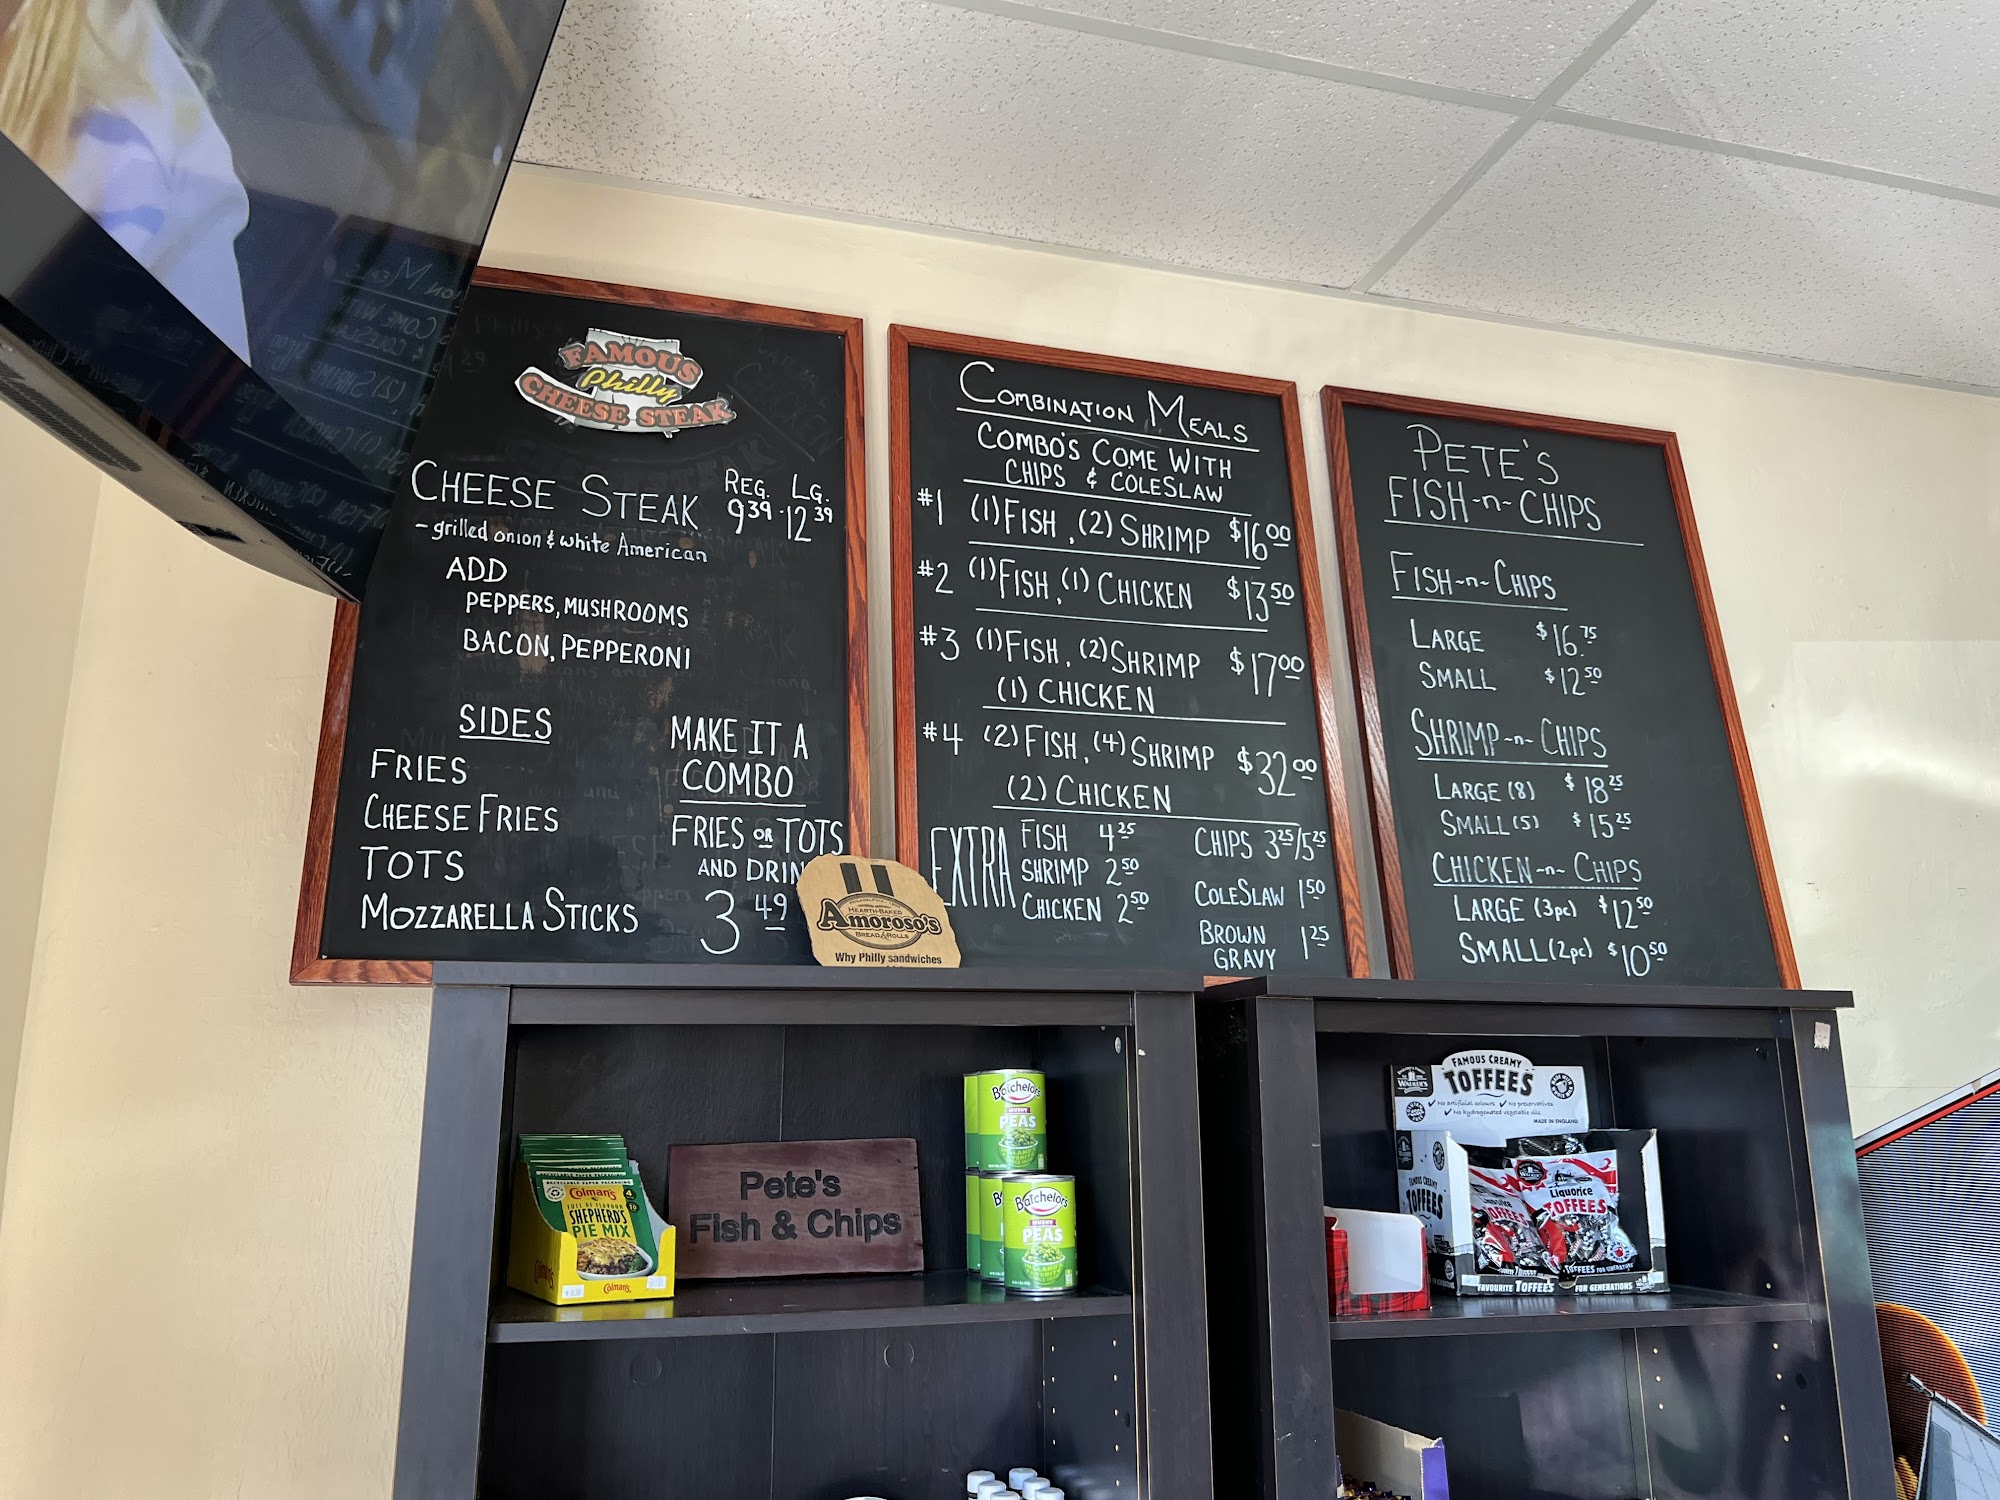 FAMOUS
Philly
CHEESE STEAK
CHEESE STEAK REG. LG.
9 39 12 39
- grilled onion & white American
ADD
PEPPERS, MUSHROOMS
BACON, PEPPERONI
SIDES
FRIES
CHEESE FRIES
TOTS
MOZZARELLA STICKS
MAKE IT A
COMBO
FRIES OR TOTS
AND DRIN
3 49
HEARTH-BAKED
Amoroso's
BREAD & ROLLS
Why Philly sandwiches
COMBINATION MEALS
COMBO'S COME WITH
CHIPS & COLESLAW
#1 (1) FISH, (2) SHRIMP $16 00
#2 (1) FISH, (1) CHICKEN $13 50
#3 (1) FISH, (2) SHRIMP $17 00
(1) CHICKEN
#4 (2) FISH, (4) SHRIMP $32 00
(2) CHICKEN
EXTRA
FISH 4 25
SHRIMP 2 50
CHICKEN 2 50
CHIPS 3 25/5 25
COLESLAW 1 50
BROWN GRAVY 1 25
PETE'S
FISH-n-CHIPS
FISH-n-CHIPS
LARGE $16.75
SMALL $12 50
SHRIMP-n-CHIPS
LARGE (8) $18 25
SMALL (5) $15 25
CHICKEN-n-CHIPS
LARGE (3pc) $12 50
SMALL (2pc) $10 50
RECYCLABLE PAPER PACKAGING
Colman's
SHEPHERD'S
PIE MIX
Colman's
Pete's
Fish & Chips
Batchelors
MUSHY
PEAS
Batchelors
MUSHY
PEAS
WALKER'S
FAMOUS CREAMY
TOFFEES
No artificial colours No preservatives
No hydrogenated vegetable oils
MADE IN ENGLAND
FAMOUS CREAMY
TOFFEES
Liquorice
TOFFEES
FAVOURITE TOFFEES FOR GENERATIONS